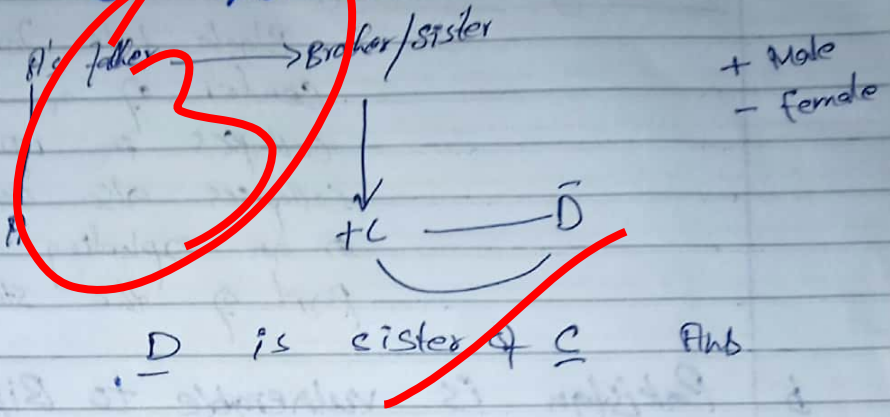 A's father → Brother/Sister
+ Male
- female
A +C — D̄
D is cister of C Ans